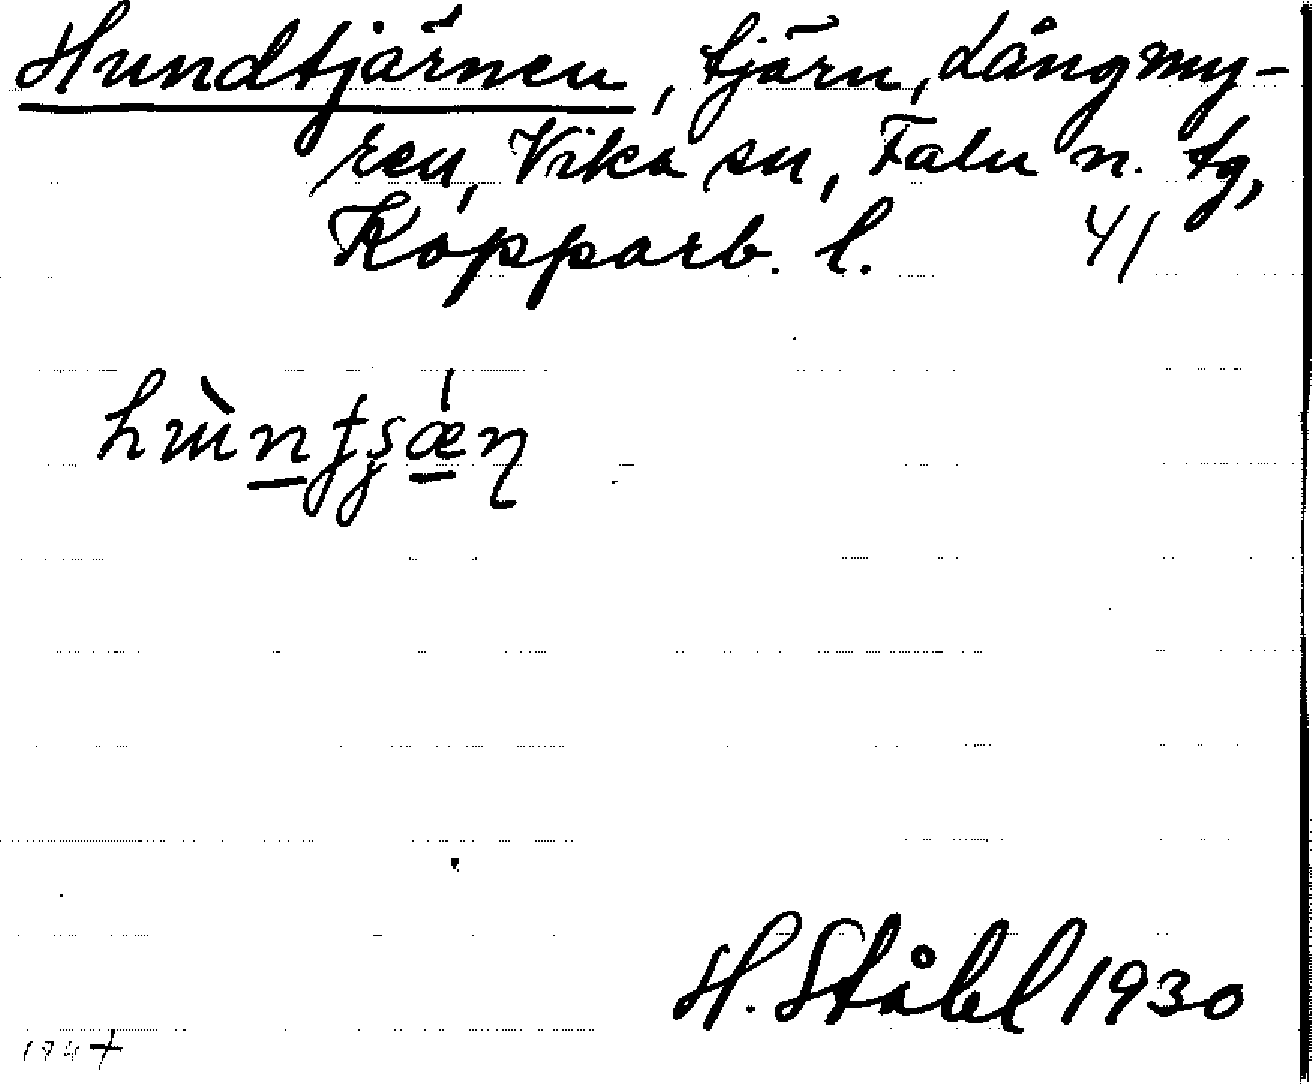 Hundtjärnen, tjärn, Långmy-
ren, Vika sn, Falu n. tg,
Kopparb. l. 41
H. Ståhl 1930